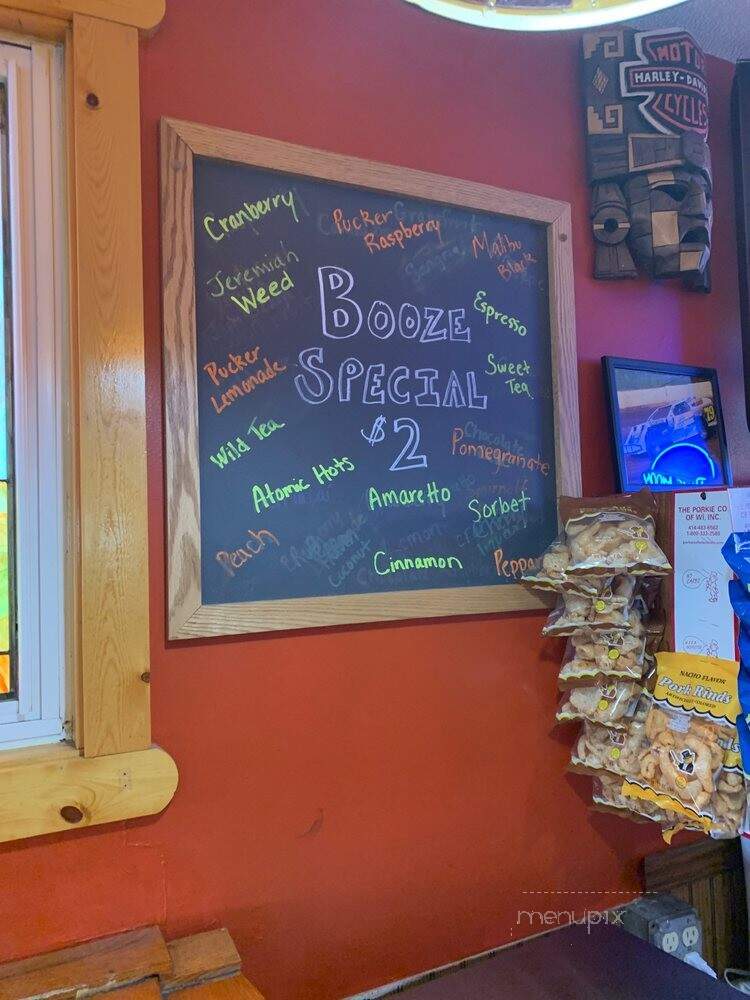 Cranberry
Pucker
Raspberry
Malibu
Black
Jeremiah
Weed
Booze
Special
$2
Espresso
Sweet
Tea
Pucker
Lemonade
Wild Tea
Pomegranate
Atomic Hots
Amaretto
Sorbet
Peach
Cinnamon
MOTO
HARLEY-DAVID
CYCLES
THE PORKIE CO.
OF WI, INC.
NACHO FLAVOR
Pork Rinds
menupix